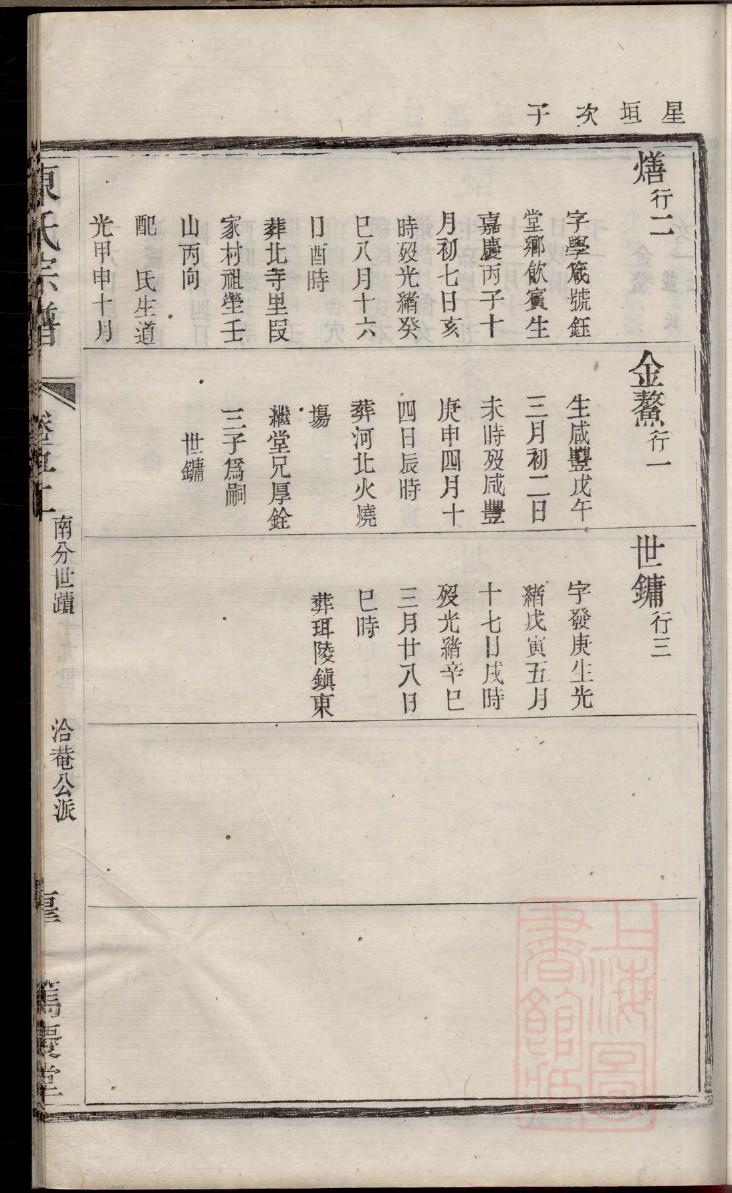 星垣次子
燔行二
字學箴號鈺
堂鄉飲賓生
嘉慶丙子十
月初七日亥
時歿光緒癸
巳八月十六
日酉時
葬北寺里段
家村祖塋壬
山丙向
配　氏生道
光甲申十月
金鰲行一
生咸豐戊午
三月初二日
未時歿咸豐
庚申四月十
四日辰時
葬河北火燒
場
繼堂兄厚銓
三子爲嗣
世鏞
世鏞行三
字發庚生光
緒戊寅五月
十七日戌時
歿光緒辛巳
三月廿八日
巳時
葬珥陵鎮東
陳氏宗譜
南分世蹟
洽菴公派
篤慶堂
上海圖書館藏